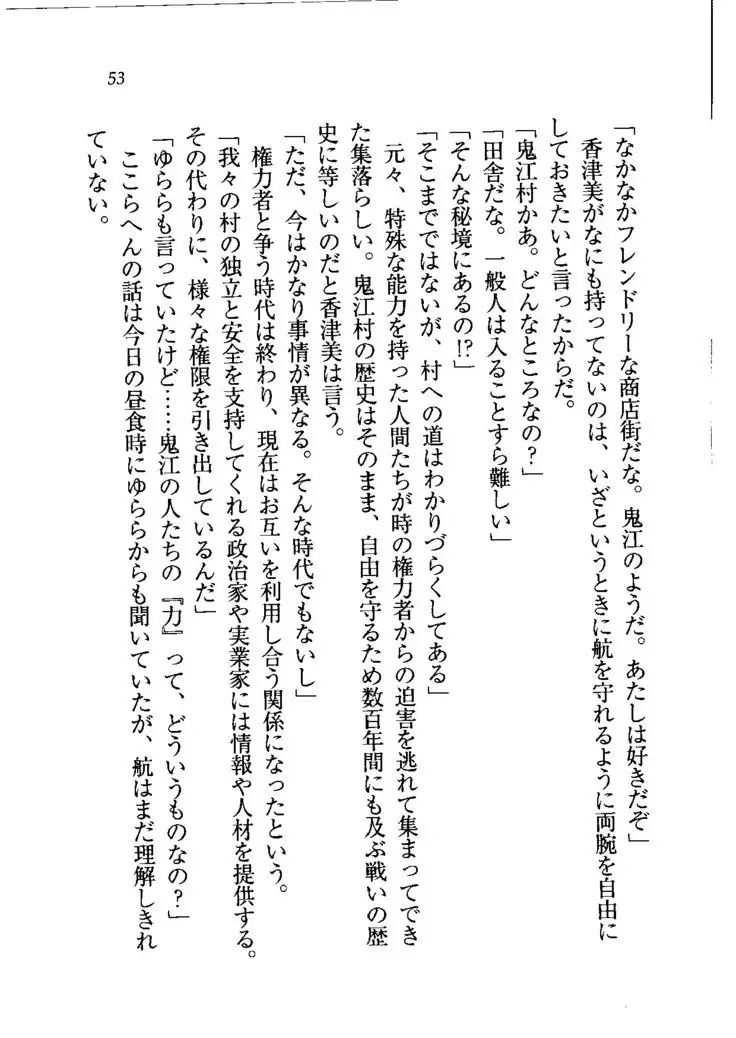 53
「なかなかフレンドリーな商店街だな。鬼江のようだ。あたしは好きだぞ」
香津美がなにも持ってないのは、いざというときに航を守れるように両腕を自由に
しておきたいと言ったからだ。
「鬼江村かあ。どんなところなの？」
「田舎だな。一般人は入ることすら難しい」
「そんな秘境にあるの!?」
「そこまでではないが、村への道はわかりづらくしてある」
元々、特殊な能力を持った人間たちが時の権力者からの迫害を逃れて集まってでき
た集落らしい。鬼江村の歴史はそのまま、自由を守るため数百年間にも及ぶ戦いの歴
史に等しいのだと香津美は言う。
「ただ、今はかなり事情が異なる。そんな時代でもないし」
権力者と争う時代は終わり、現在はお互いを利用し合う関係になったという。
「我々の村の独立と安全を支持してくれる政治家や実業家には情報や人材を提供する。
その代わりに、様々な権限を引き出しているんだ」
「ゆららも言っていたけど……鬼江の人たちの『力』って、どういうものなの？」
ここらへんの話は今日の昼食時にゆららからも聞いていたが、航はまだ理解しきれ
ていない。